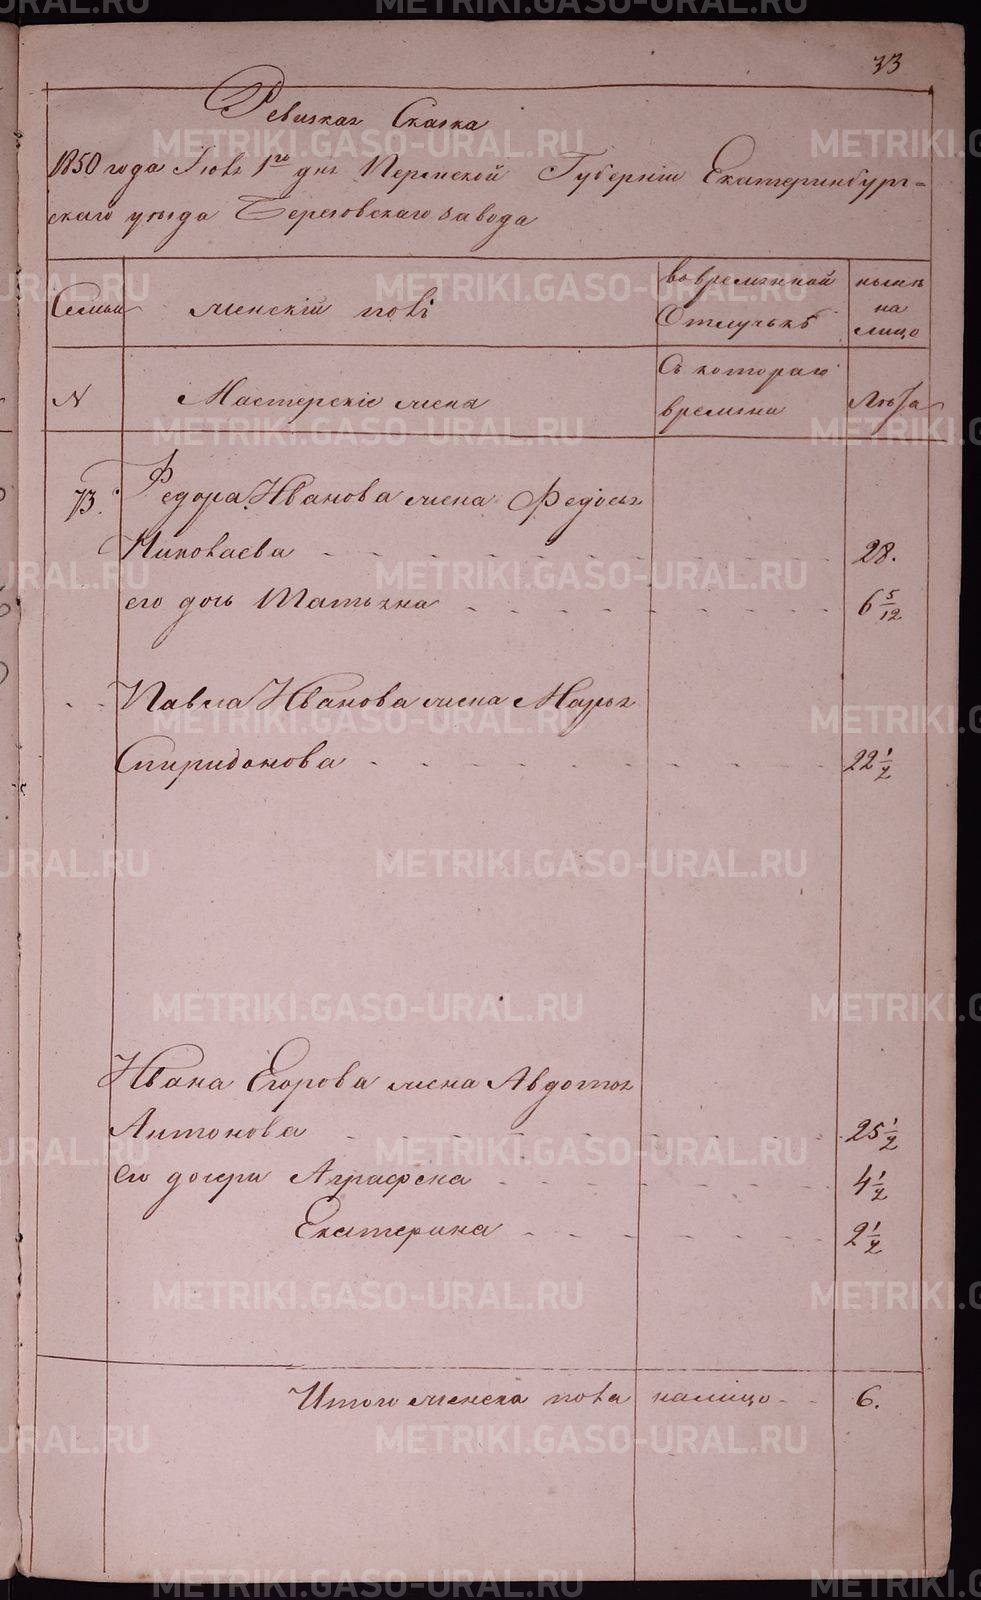 33
Ревизкая Сказка
1850 года Июня 1го дня Пермской Губернiи Екатеринбург=
скаго уезда Березовскаго завода
Семьи
женскiй полъ
во временной
Отлучькѣ
нынѣ
на
лицо
N
Мастерскiе жены
Съ котораго
времени
Лѣта
73.
Федора Иванова жена Федосья
Николаева 28.
его дочь Татьяна 6 5/12
Павла Иванова жена Марья
Спиридонова 22 1/2
Ивана Егорова жена Авдотья
Антонова 25 1/2
его дочери Аграфена 4 1/2
Екатерина 2 1/2
Итого женска пола налицо 6.
METRIKI.GASO-URAL.RU